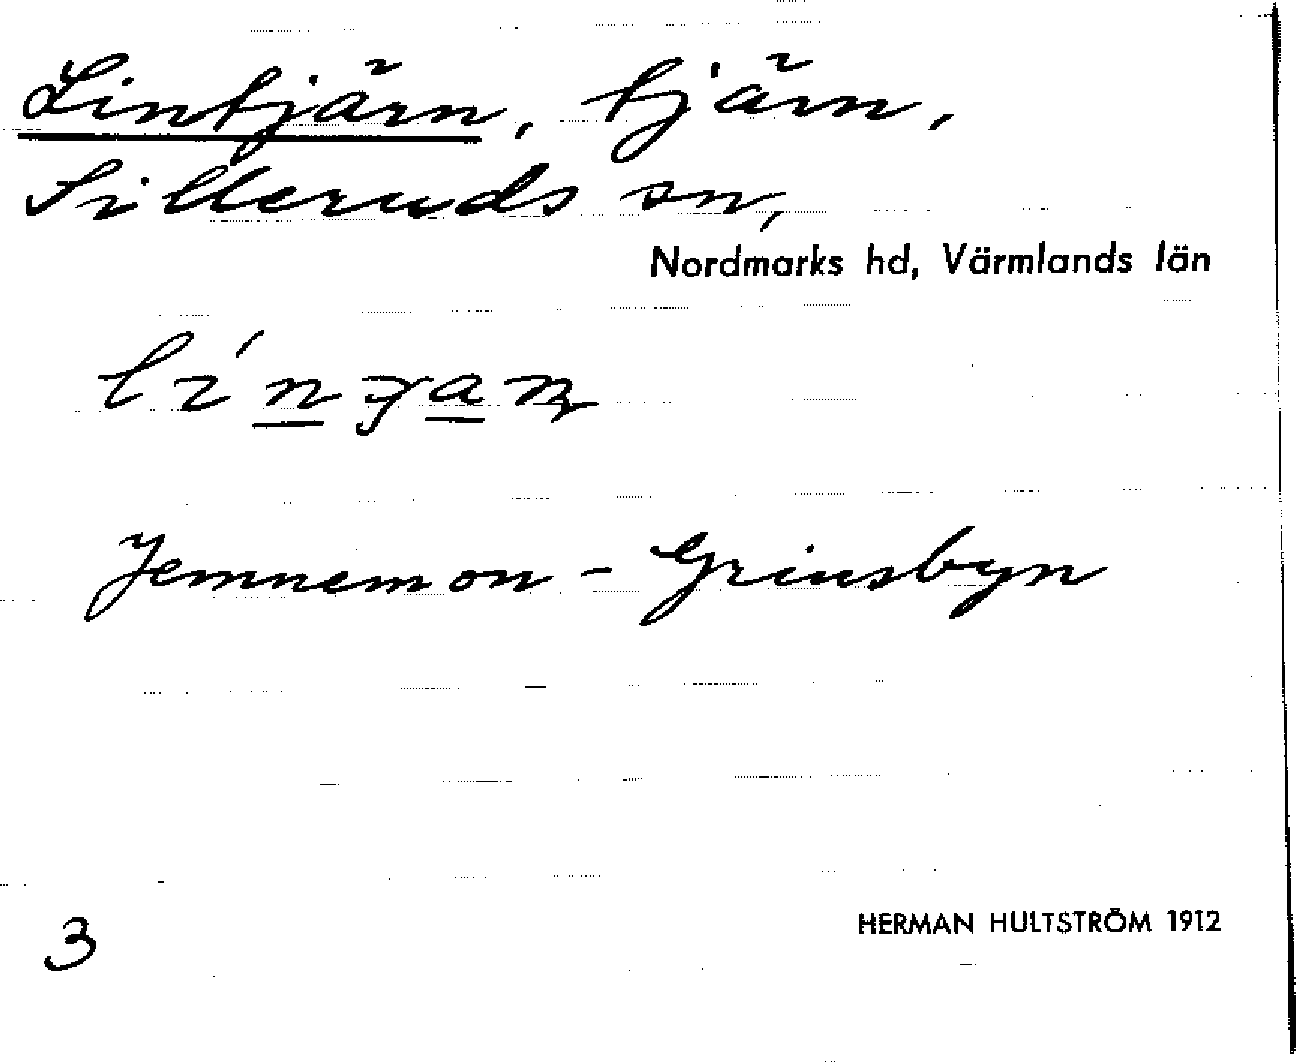 Lintjärn, tjärn,
Silleruds sn,
Nordmarks hd, Värmlands län
Jemnemon - Grinsbyn
3
HERMAN HULTSTRÖM 1912